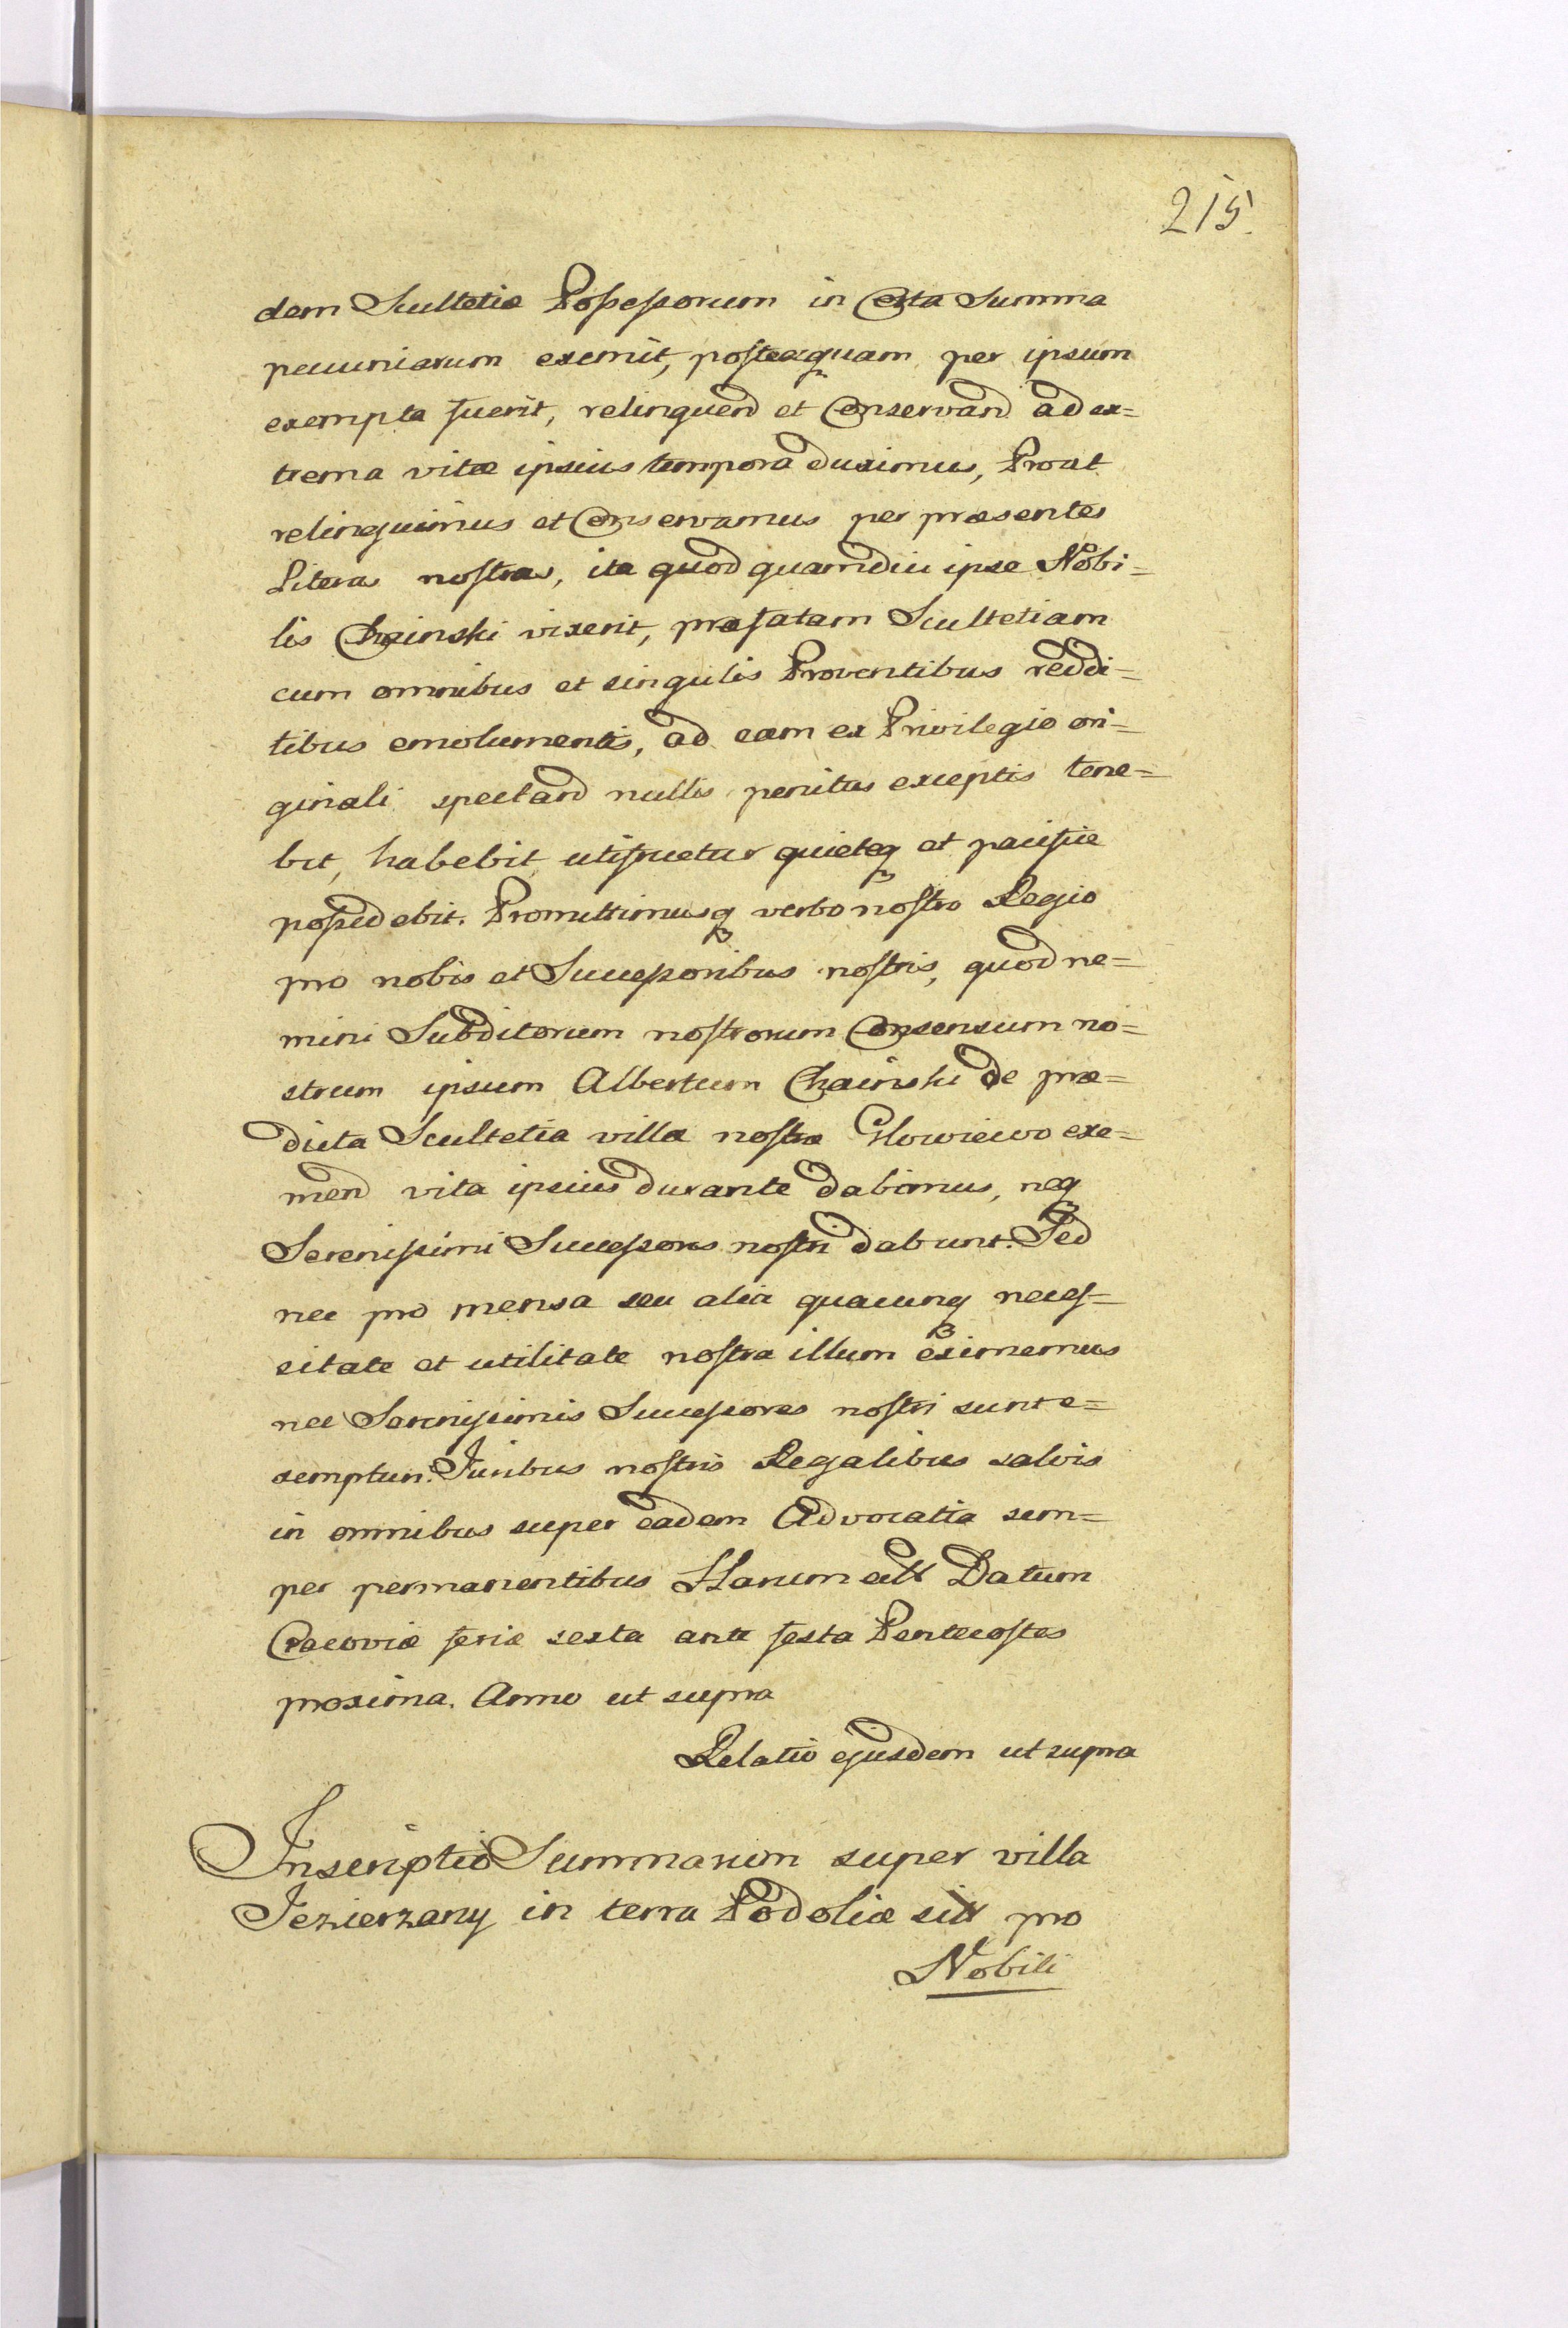 215.
dem Scultetiæ Possessorum in Certa Summa
pecuniarum exemit, posteaquam per ipsum
exempta fuerit, relinquend et Conservand ad ex=
trema vitæ ipsius tempora duximus, Prout
relinquimus et Conservamus per præsentes
Literas nostras, ita quod quamdiu ipse Nobi=
lis Chainski vixerit, præfatam Scultetiam
cum omnibus et singulis Proventibus reddi=
tibus emolumentis, ad eam ex Privilegio ori=
ginali spectand nullis penitus exceptis tene=
bit, habebit utifruetur quieteq et pacifice
possidebit. Promittimusq verbo nostro Regio
pro nobis et Successoribus nostris, quod ne=
mini Subditorum nostrorum Consensum no=
strum ipsum Albertum Chainski de præ=
dicta Scultetia villæ nostræ Glowiewo exe=
mend vita ipsius durante dabimus, neq
Serenissimi Successores nostri dabunt. Sed
nec pro mensa seu alia quacunq neces=
sitate et utilitate nostra illum eximemus
nec Serenissimis Successores nostri sunt e=
xempturi. Juribus nostris Regalibus salvis
in omnibus super eadem Advocatia sem=
per permanentibus Harum ett Datum
Cracoviæ feria sexta ante festa Pentecostes
proxima. Anno ut supra
Relatio ejusdem ut supra
Inscriptio Summarum super villa
Jezierzany in terra Podoliæ sitt pro
Nobili